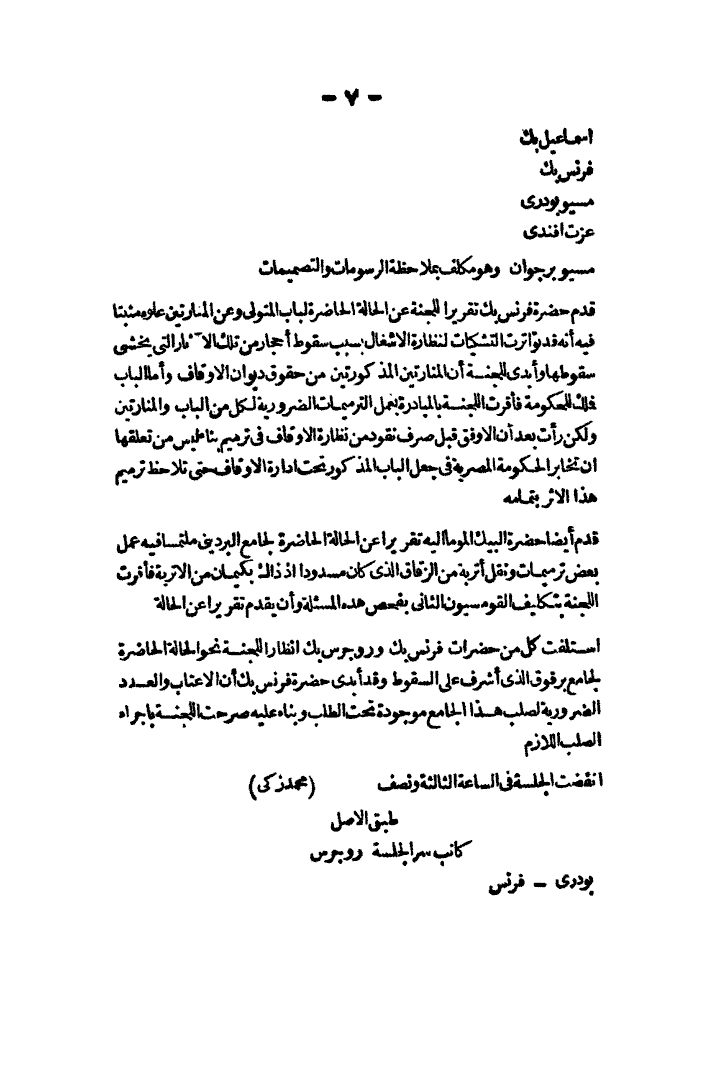 - ٧ -
اسماعيل بك
فرنس بك
مسيو بودرى
عزت افندى
مسيو برجوان وهو مكلف بملاحظة الرسومات والتصميمات
قدم حضرة فرنس بك تقريرا للجنة عن الحالة الحاضرة لباب المتولى وعن المنارتين علوه مثبتا
فيه أنه قد تواترت التشكيات لنظارة الاشغال بسبب سقوط أحجار من تلك الآثار التى يخشى
سقوطها وأبدى للجنسة أن المنارتين المذكورتين من حقوق ديوان الاوقاف وأما الباب
فملك للحكومة فأقرت اللجنسة بالمبادرة بعمل الترميمات الضرورية لكل من الباب والمنارتين
ولكن رأت بعد أن الاوفق قبل صرف نقود من نظارة الاوقاف فى ترميم بناء ليس من تعلقها
ان تتخابر الحكومة المصرية فى جعل الباب المذكور تحت ادارة الاوقاف حتى تلاحظ ترميم
هذا الاثر بتمامه
قدم أيضا حضرة البيك الموما اليه تقريرا عن الحالة الحاضرة لجامع البردينى ملتمسا فيه عمل
بعض ترميمات ونقل أتربة من الزقاق الذى كان مسدودا اذ ذاك بكيمان من الاتربة فأقرت
اللجنة بتكليف القومسيون الثانى بفحص هذه المسئلة وأن يقدم تقريرا عن الحالة
استلفت كل من حضرات فرنس بك وروجرس بك انظار اللجنسة نحو الحالة الحاضرة
لجامع برقوق الذى أشرف على السقوط وقد أبدى حضرة فرنس بك أن الاعتاب والعدد
الضرورية لصلب هذا الجامع موجودة تحت الطلب وبناء عليه صرحت اللجنسة باجراء
الصلب اللازم
انقضت الجلسة فى الساعة الثالثة ونصف (محمد زكى)
طبق الاصل
كاتب سر الجلسة روجرس
بودرى - فرنس